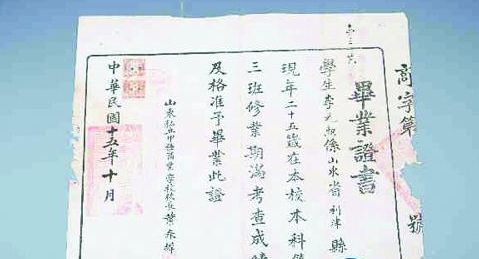 商字第 號
畢業證書
學生李元 係山東省利津縣
現年二十五歲在本校本科
三班修業期滿考查成
及格准予畢業此證
山東私立甲種商業學校校長葉春墀
中華民國十五年十月